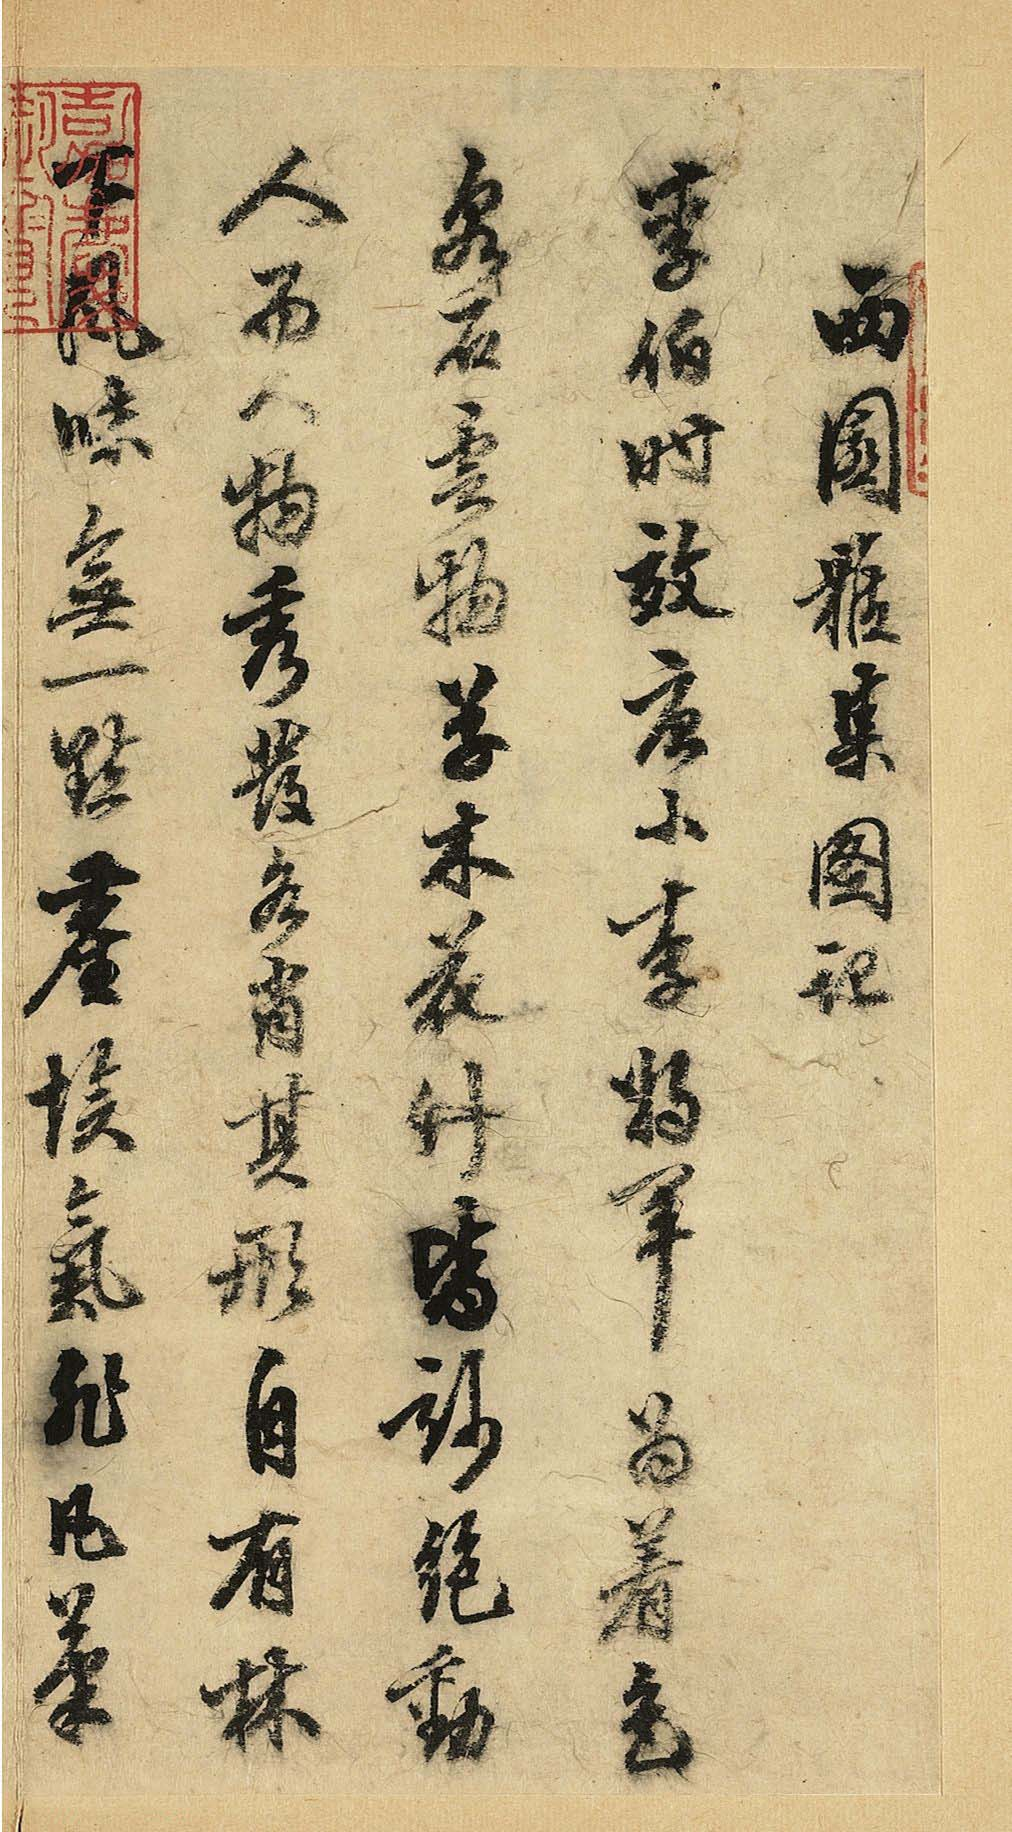 西園雅集图記
李伯时效唐小李將軍為着色
泉石雲物草木花竹皆妙絶動
人而人物秀發各肖其形自有林
下風味無一點塵埃氣非凡筆